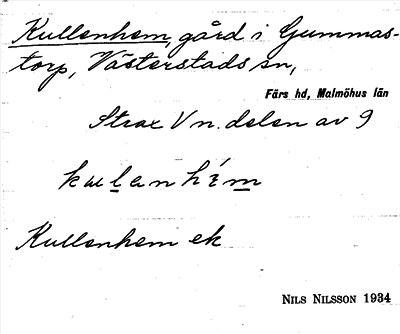 Kullenhem, gård i Gummas-
torp, Västerstads sn,
Färs hd, Malmöhus län
Strax V n. delen av 9
kulanhém
Kullenhem ek
NILS NILSSON 1934